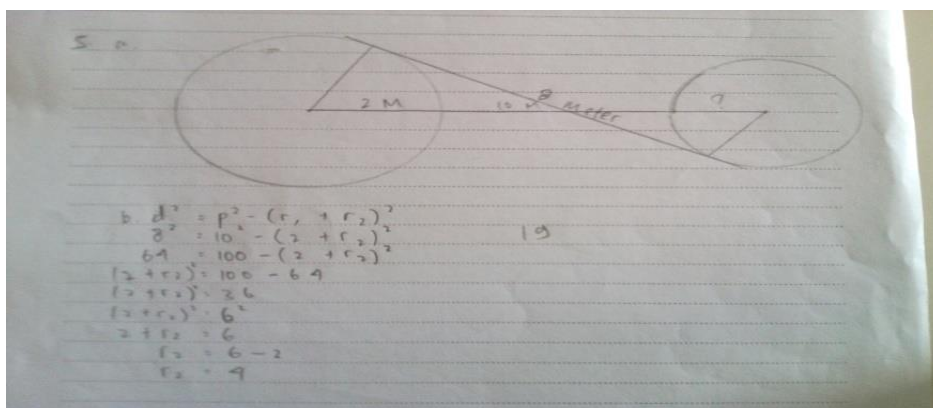 5. a.
2 M
10 M
8 Meter
?
b. d² = p² - (r₁ + r₂)²
8² = 10² - (2 + r₂)²
64 = 100 - (2 + r₂)²
(2 + r₂)² = 100 - 64
(2 + r₂)² = 36
(2 + r₂)² = 6²
2 + r₂ = 6
r₂ = 6 - 2
r₂ = 4
19